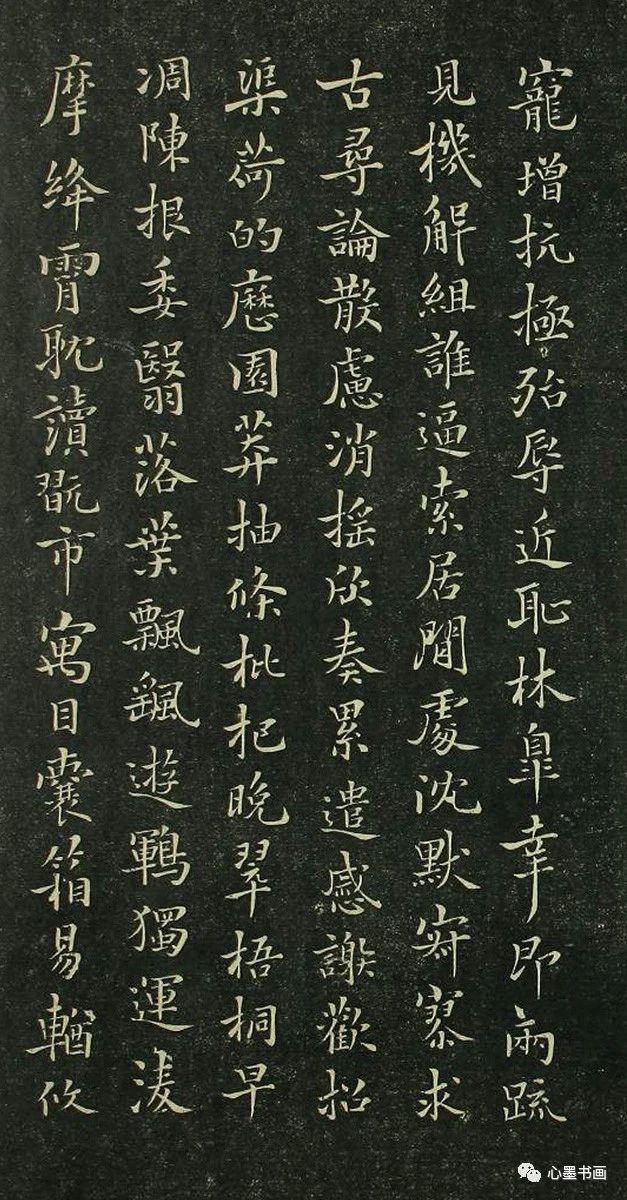 寵增抗極殆辱近恥林皐幸即兩疏
見機解組誰逼索居閒處沈默寂寥求
古尋論散慮消摇欣奏累遣慼謝歡招
渠荷的歷園莽抽條枇杷晚翠梧桐早
凋陳根委翳落葉飄飖遊鵾獨運淩
摩絳霄耽讀翫市寓目囊箱易輶攸
心墨书画